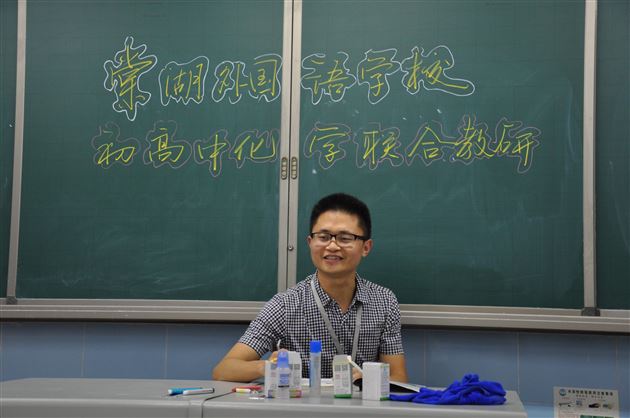 棠湖外国语学校
初高中化学联合教研